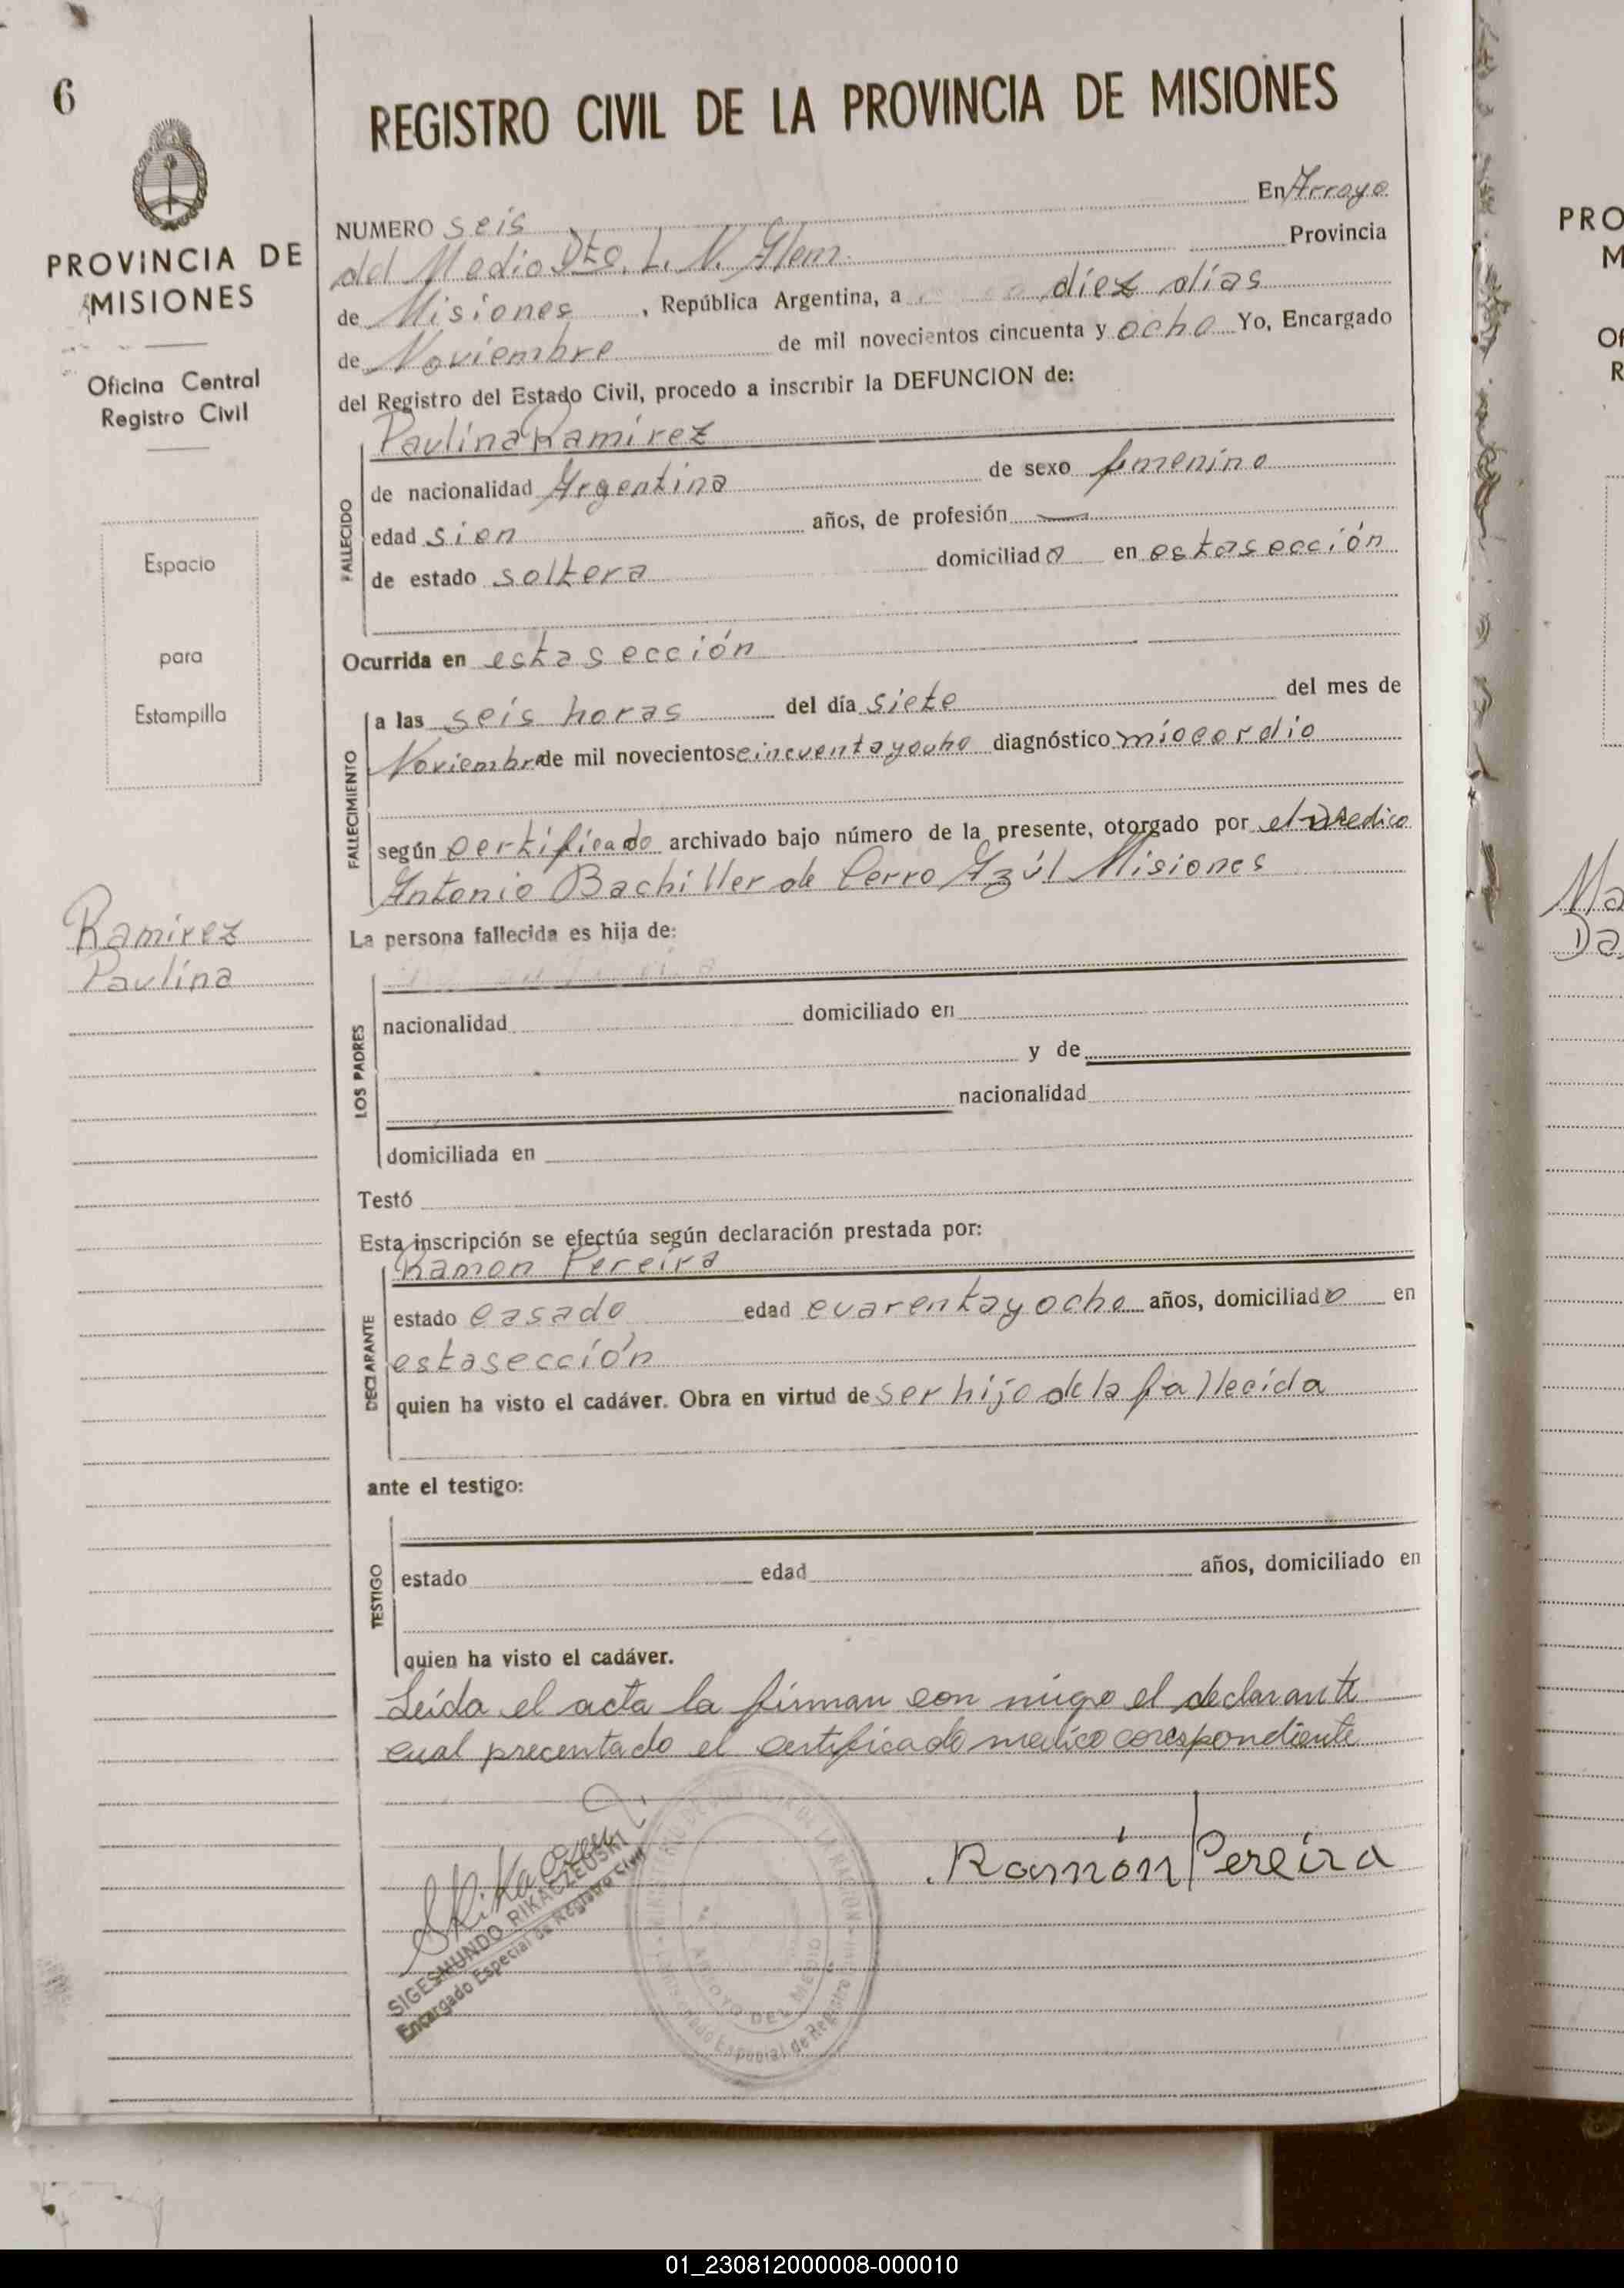 6
PROVINCIA DE
MISIONES
Oficina Central
Registro Civil
Espacio
para
Estampilla
Ramirez
Paulina
REGISTRO CIVIL DE LA PROVINCIA DE MISIONES
NUMERO seis En Arroyo
del Medio Dto. L. N. Alem. Provincia
de Misiones, República Argentina, a diez días
de Noviembre de mil novecientos cincuenta y ocho Yo, Encargado
del Registro del Estado Civil, procedo a inscribir la DEFUNCION de:
Paulina Ramirez
FALLECIDO
de nacionalidad Argentina de sexo femenino
edad sien años, de profesión —
de estado soltera domiciliada en esta sección
Ocurrida en esta sección
FALLECIMIENTO
a las seis horas del día siete del mes de
Noviembre de mil novecientos cincuenta y ocho diagnóstico miocordio
según certificado archivado bajo número de la presente, otorgado por el Medico
Antonio Bachiller de Cerro Azúl Misiones
La persona fallecida es hija de:
LOS PADRES
nacionalidad domiciliado en
y de
nacionalidad
domiciliada en
Testó
Esta inscripción se efectúa según declaración prestada por:
Ramon Pereira
DECLARANTE
estado casado edad cuarenta y ocho años, domiciliado en
esta sección
quien ha visto el cadáver. Obra en virtud de ser hijo de la fallecida
ante el testigo:
TESTIGO
estado edad años, domiciliado en
quien ha visto el cadáver.
Leída el acta la firman con migo el declarante
cual precentado el certificado medico corespondiente
Ramón Pereira
SIGESMUNDO RIKACZEUSKI
Encargado Especial de Registro Civil
ARROYO DEL MEDIO
Especial de Registro
PRO
M
Of
R
Ma
Da
01_230812000008-000010